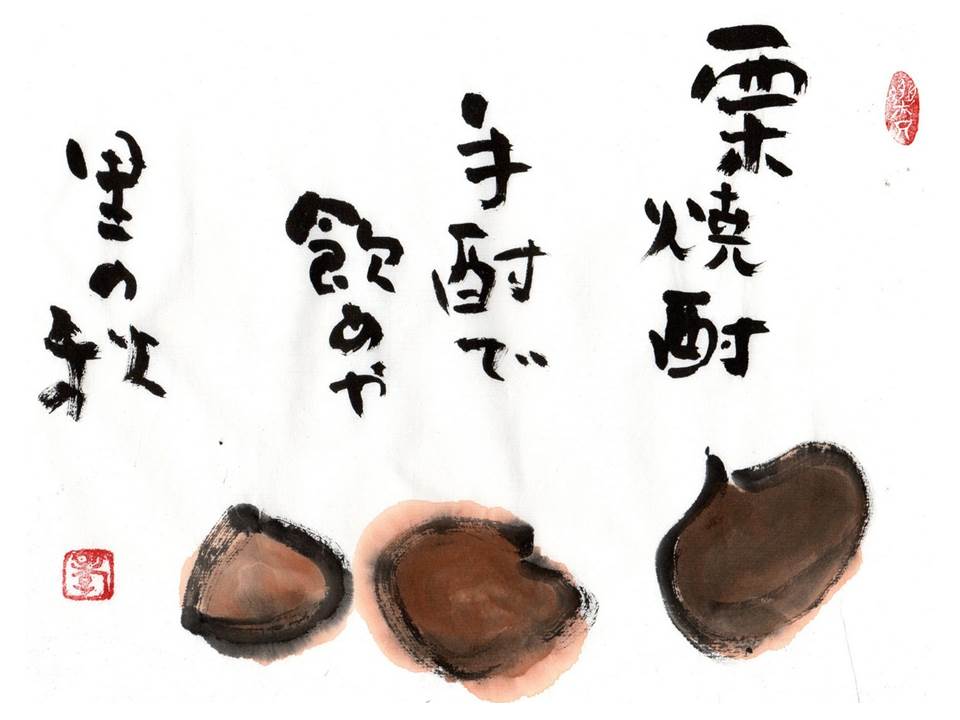 栗焼酎
手酌で
飲めや
里の秋